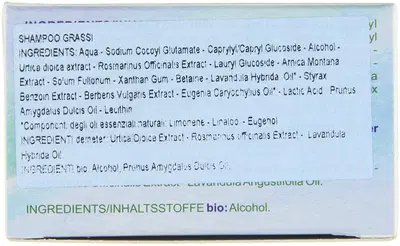 SHAMPOO GRASSI
INGREDIENTS: Aqua - Sodium Cocoyl Glutamate - Caprylyl/Capryl Glucoside - Alcohol -
Urtica dioica extract - Rosmarinus Officinalis Extract - Lauryl Glucoside - Arnica Montana
Extract - Solum Fullonum - Xanthan Gum - Betaine - Lavandula Hybrida Oil* - Styrax
Benzoin Extract - Berberis Vulgaris Extract - Eugenia Caryophyllus Oil* - Lactic Acid - Prunus
Amygdalus Dulcis Oil - Lecithin
*Component: degli oli essenziali naturali: Limonene - Linaloo - Eugenol
INGREDIENTI demeter: Urtica Dioica Extract - Rosmarinus officinalis Extract - Lavandula
Hybrida Oil
INGREDIENTI bio: Alcohol, Prunus Amygdalus Dulcis Oil.
Officinalis Extract - Lavandula Angustifolia Oil.
INGREDIENTS/INHALTSSTOFFE bio: Alcohol.